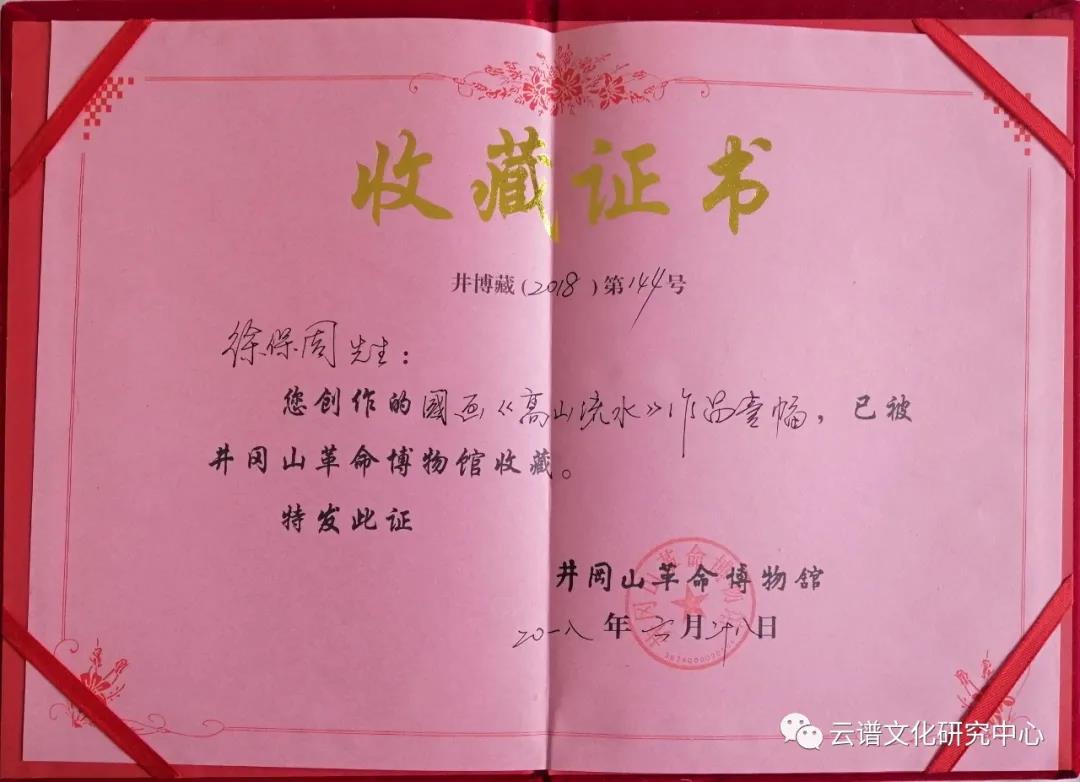 收藏证书
井博藏(2018)第144号
徐保周先生：
您创作的國画《高山流水》作品壹幅，已被
井冈山革命博物馆收藏。
特发此证
井冈山革命博物馆
二0一八年六月廿八日
井冈山革命博物馆
云谱文化研究中心